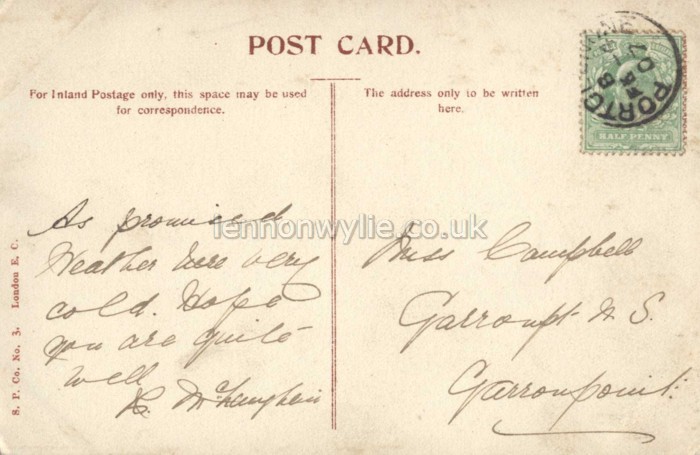 POST CARD.
For Inland Postage only, this space may be used
for correspondence.
The address only to be written
here.
HALF PENNY
As promised
Weather here very
cold. Hope
you are quite
well
McLaughlin
Miss Campbell
Garronpt N S.
Garronpoint
S. P. Co. No. 3. London E. C.
lennonwylie.co.uk